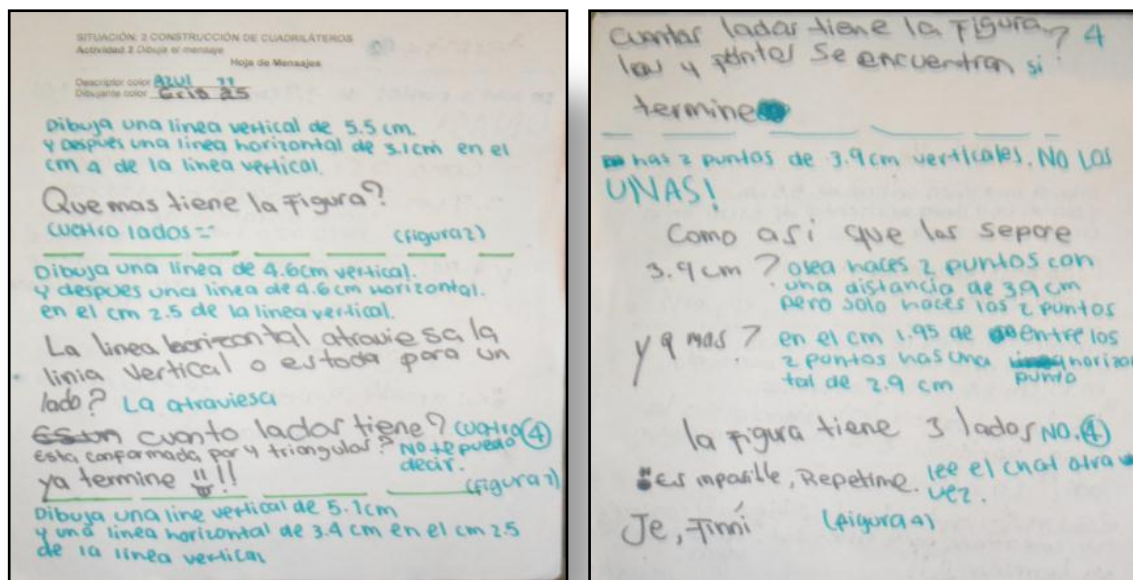 SITUACIÓN: 2 CONSTRUCCIÓN DE CUADRILÁTEROS
Actividad 2 Dibuja el mensaje
Hoja de Mensajes
Descriptor color Azul
Dibujante color Gris
Dibuja una linea vertical de 5.5 cm.
y despues una linea horizontal de 3.1cm en el
cm 4 de la linea vertical.
Que mas tiene la Figura?
cuatro lados
(figura2)
Dibuja una línea de 4.6cm vertical.
y despues una linea de 4.6 cm horizontal.
en el cm 2.5 de la linea vertical.
La linea horizontal atraviesa la
linia vertical o es toda para un
lado? La atraviesa
cuanto lados tiene? cuatro (4)
Esta conformada por 4 triangulos? No te puedo
decir.
ya termine !!
(figura 1)
Dibuja una line vertical de 5.1cm
y una linea horizontal de 3.4 cm en el cm 2.5
de la línea vertical
cuantos lados tiene la Figura? 4
los 4 puntos Se encuentran si
termine
has 2 puntos de 3.9cm verticales. NO LOS
UNAS!
Como asi que los separe
3.9 cm? osea haces 2 puntos con
una distancia de 3.9 cm
pero solo haces los 2 puntos
y q mas? en el cm 1.95 de entre los
2 puntos has una horizon
tal de 2.9 cm punto
la figura tiene 3 lados NO. (4)
Es imposible, Repetime. lee el chat otra
vez.
Je, Finni (figura 4)